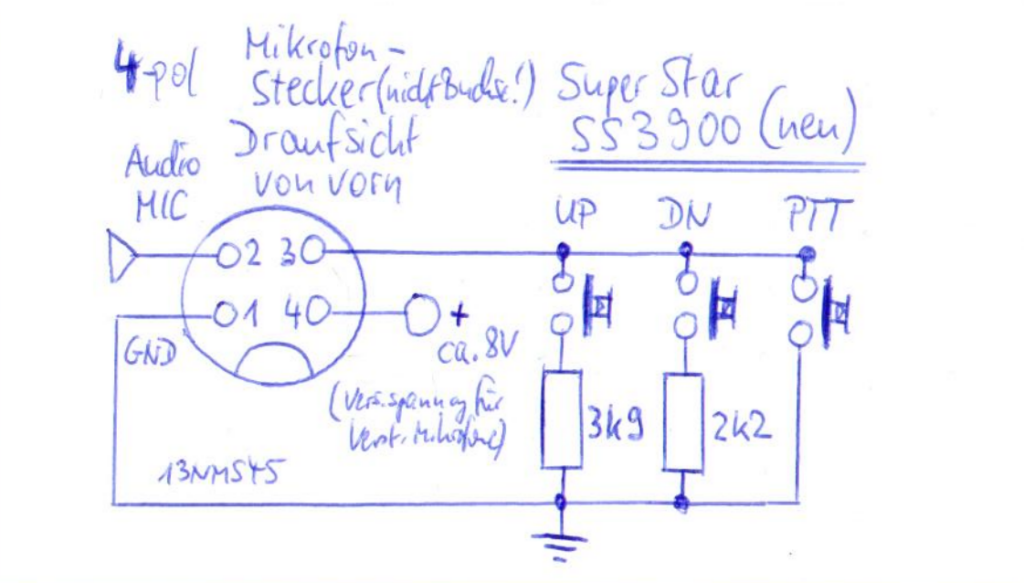 4-pol
Mikrofon-
Stecker (nicht Buchse!)
Draufsicht
von vorn
Super Star
SS3900 (neu)
Audio
MIC
UP DN PTT
2 3
1 4
+
ca. 8V
GND
(Vers.spannung für
Verst. Mikrofone)
3k9 2k2
13NM545